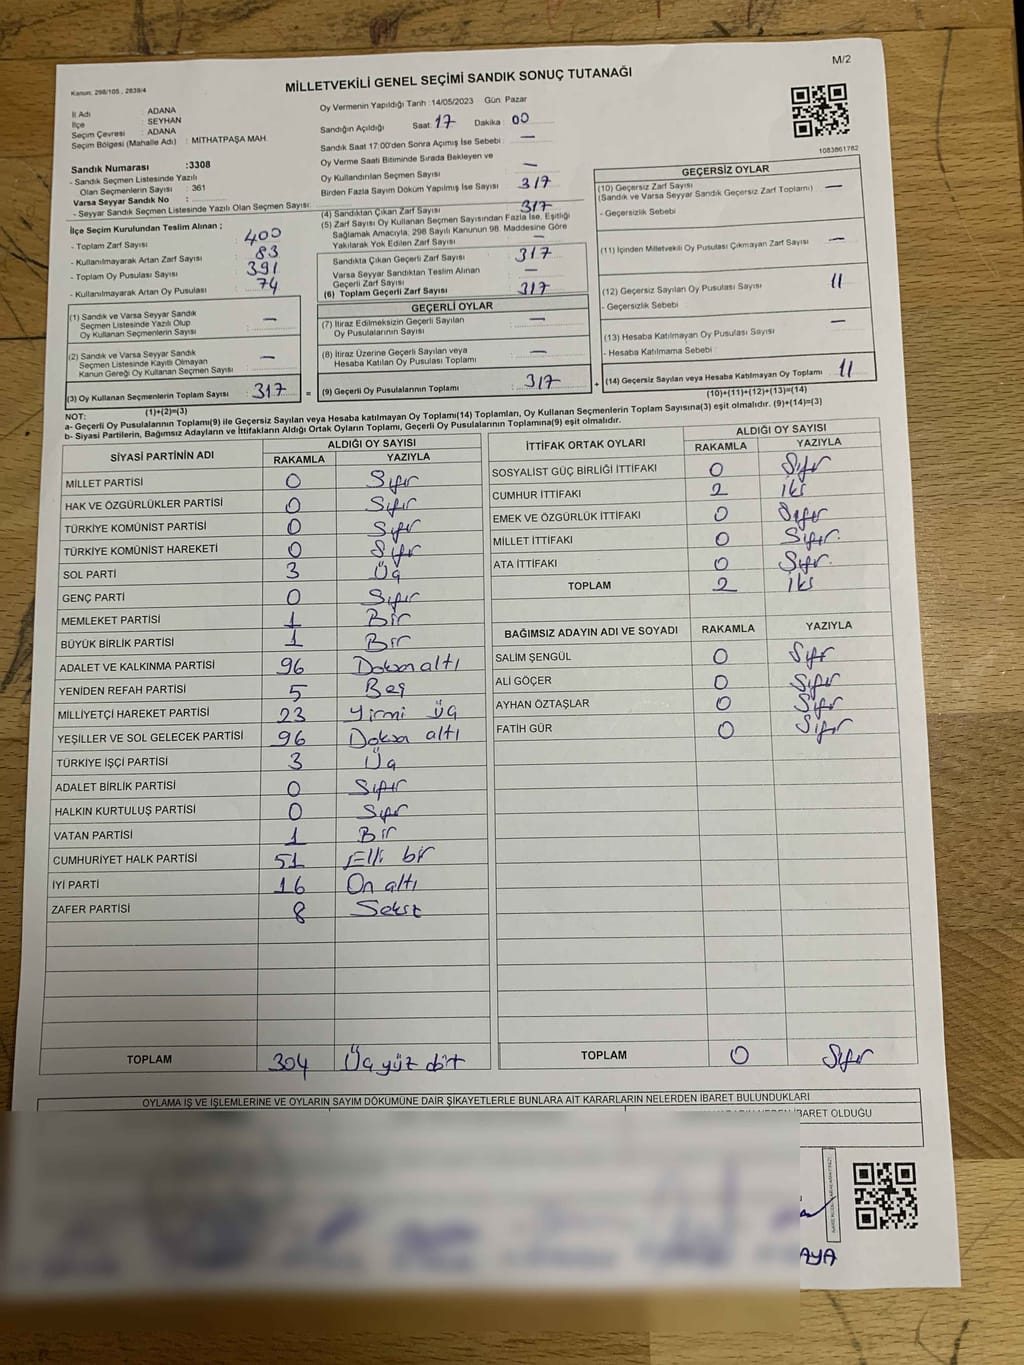 M/2
Kanun: 298/105 , 2839/4
MİLLETVEKİLİ GENEL SEÇİMİ SANDIK SONUÇ TUTANAĞI
İl Adı : ADANA
İlçe : SEYHAN
Seçim Çevresi : ADANA
Seçim Bölgesi (Mahalle Adı) : MİTHATPAŞA MAH.
Sandık Numarası :3308
- Sandık Seçmen Listesinde Yazılı
Olan Seçmenlerin Sayısı : 361
Varsa Seyyar Sandık No :
- Seyyar Sandık Seçmen Listesinde Yazılı Olan Seçmen Sayısı:
İlçe Seçim Kurulundan Teslim Alınan ;
- Toplam Zarf Sayısı : 400
- Kullanılmayarak Artan Zarf Sayısı : 83
- Toplam Oy Pusulası Sayısı : 391
- Kullanılmayarak Artan Oy Pusulası : 74
(1) Sandık ve Varsa Seyyar Sandık
Seçmen Listesinde Yazılı Olup
Oy Kullanan Seçmenlerin Sayısı : —
(2) Sandık ve Varsa Seyyar Sandık
Seçmen Listesinde Kayıtlı Olmayan
Kanun Gereği Oy Kullanan Seçmen Sayısı : —
(3) Oy Kullanan Seçmenlerin Toplam Sayısı : 317
(1)+(2)=(3)
Oy Vermenin Yapıldığı Tarih :14/05/2023 Gün: Pazar
Sandığın Açıldığı Saat: 17 Dakika : 00
Sandık Saat 17:00'den Sonra Açımış İse Sebebi : —
Oy Verme Saati Bitiminde Sırada Bekleyen ve
Oy Kullandırılan Seçmen Sayısı : —
Birden Fazla Sayım Döküm Yapılmış İse Sayısı : 317
(4) Sandıktan Çıkan Zarf Sayısı : 317
(5) Zarf Sayısı Oy Kullanan Seçmen Sayısından Fazla İse, Eşitliği
Sağlamak Amacıyla, 298 Sayılı Kanunun 98. Maddesine Göre
Yakılarak Yok Edilen Zarf Sayısı : —
Sandıkta Çıkan Geçerli Zarf Sayısı : 317
Varsa Seyyar Sandıktan Teslim Alınan
Geçerli Zarf Sayısı : —
(6) Toplam Geçerli Zarf Sayısı : 317
GEÇERLİ OYLAR
(7) İtiraz Edilmeksizin Geçerli Sayılan
Oy Pusulalarının Sayısı : —
(8) İtiraz Üzerine Geçerli Sayılan veya
Hesaba Katılan Oy Pusulası Toplamı : —
= (9) Geçerli Oy Pusulalarının Toplamı : 317
1083861782
GEÇERSİZ OYLAR
(10) Geçersiz Zarf Sayısı
(Sandık ve Varsa Seyyar Sandık Geçersiz Zarf Toplamı) : —
- Geçersizlik Sebebi
(11) İçinden Milletvekili Oy Pusulası Çıkmayan Zarf Sayısı : —
(12) Geçersiz Sayılan Oy Pusulası Sayısı : 11
- Geçersizlik Sebebi :
(13) Hesaba Katılmayan Oy Pusulası Sayısı : —
- Hesaba Katılmama Sebebi :
+ (14) Geçersiz Sayılan veya Hesaba Katılmayan Oy Toplamı : 11
(10)+(11)+(12)+(13)=(14)
NOT:
a- Geçerli Oy Pusulalarının Toplamı(9) ile Geçersiz Sayılan veya Hesaba katılmayan Oy Toplamı(14) Toplamları, Oy Kullanan Seçmenlerin Toplam Sayısına(3) eşit olmalıdır. (9)+(14)=(3)
b- Siyasi Partilerin, Bağımsız Adayların ve İttifakların Aldığı Ortak Oyların Toplamı, Geçerli Oy Pusulalarının Toplamına(9) eşit olmalıdır.
SİYASİ PARTİNİN ADI ALDIĞI OY SAYISI
RAKAMLA YAZIYLA
MİLLET PARTİSİ 0 Sıfır
HAK VE ÖZGÜRLÜKLER PARTİSİ 0 Sıfır
TÜRKİYE KOMÜNİST PARTİSİ 0 Sıfır
TÜRKİYE KOMÜNİST HAREKETİ 0 Sıfır
SOL PARTİ 3 Üç
GENÇ PARTİ 0 Sıfır
MEMLEKET PARTİSİ 1 Bir
BÜYÜK BİRLİK PARTİSİ 1 Bir
ADALET VE KALKINMA PARTİSİ 96 Doksan altı
YENİDEN REFAH PARTİSİ 5 Beş
MİLLİYETÇİ HAREKET PARTİSİ 23 Yirmi üç
YEŞİLLER VE SOL GELECEK PARTİSİ 96 Doksan altı
TÜRKİYE İŞÇİ PARTİSİ 3 Üç
ADALET BİRLİK PARTİSİ 0 Sıfır
HALKIN KURTULUŞ PARTİSİ 0 Sıfır
VATAN PARTİSİ 1 Bir
CUMHURİYET HALK PARTİSİ 51 Elli bir
İYİ PARTİ 16 On altı
ZAFER PARTİSİ 8 Sekiz
TOPLAM 304 Üç yüz dört
İTTİFAK ORTAK OYLARI ALDIĞI OY SAYISI
RAKAMLA YAZIYLA
SOSYALİST GÜÇ BİRLİĞİ İTTİFAKI 0 Sıfır
CUMHUR İTTİFAKI 2 iki
EMEK VE ÖZGÜRLÜK İTTİFAKI 0 Sıfır
MİLLET İTTİFAKI 0 Sıfır.
ATA İTTİFAKI 0 Sıfır.
TOPLAM 2 iki
BAĞIMSIZ ADAYIN ADI VE SOYADI RAKAMLA YAZIYLA
SALİM ŞENGÜL 0 Sıfır
ALİ GÖÇER 0 Sıfır
AYHAN ÖZTAŞLAR 0 Sıfır
FATİH GÜR 0 Sıfır
TOPLAM 0 Sıfır
OYLAMA İŞ VE İŞLEMLERİNE VE OYLARIN SAYIM DÖKÜMÜNE DAİR ŞİKAYETLERLE BUNLARA AİT KARARLARIN NELERDEN İBARET BULUNDUKLARI
İBARET OLDUĞU
AYA